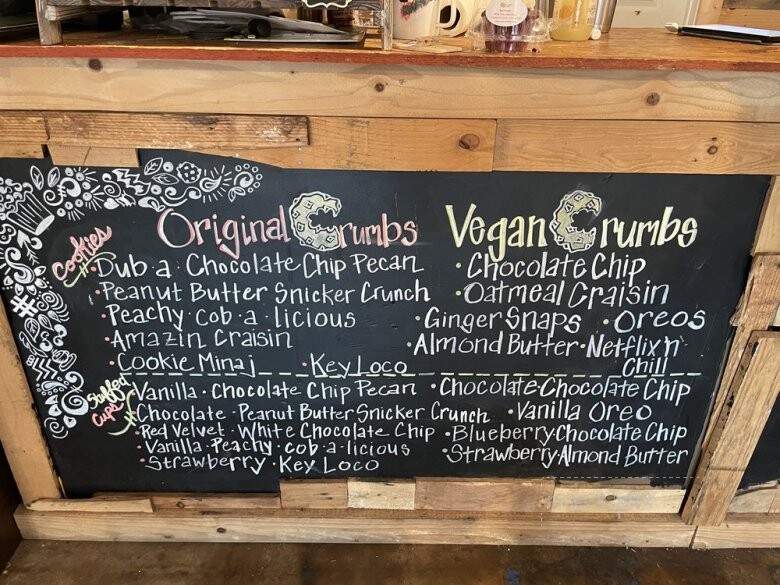 Original Crumbs
Cookies
· Dub · a · Chocolate Chip Pecan
· Peanut Butter Snicker Crunch
· Peachy · cob · a · licious
· Amazin Craisin
· Cookie Minaj · Key Loco
Stuffed Cups
· Vanilla · Chocolate Chip Pecan
· Chocolate · Peanut Butter Snicker Crunch
· Red Velvet · White Chocolate Chip
· Vanilla · Peachy · cob · a · licious
· Strawberry · Key Loco
Vegan Crumbs
· Chocolate Chip
· Oatmeal Craisin
· Ginger Snaps · Oreos
· Almond Butter · Netflix n'
Chill
· Chocolate · Chocolate Chip
· Vanilla Oreo
· Blueberry · Chocolate Chip
· Strawberry · Almond Butter